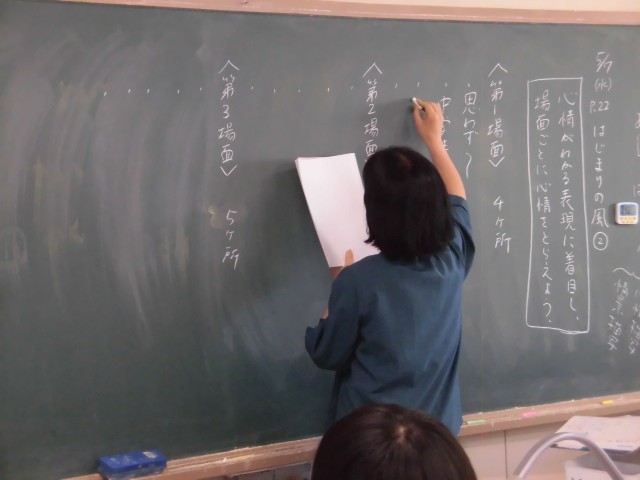 5/7(水)
P.22 はじまりの風②
心情がわかる表現に着目し、
場面ごとに心情をとらえよう。
〈第1場面〉 4ヶ所
思わず〜
〈第2場面
〈第3場面〉 5ヶ所